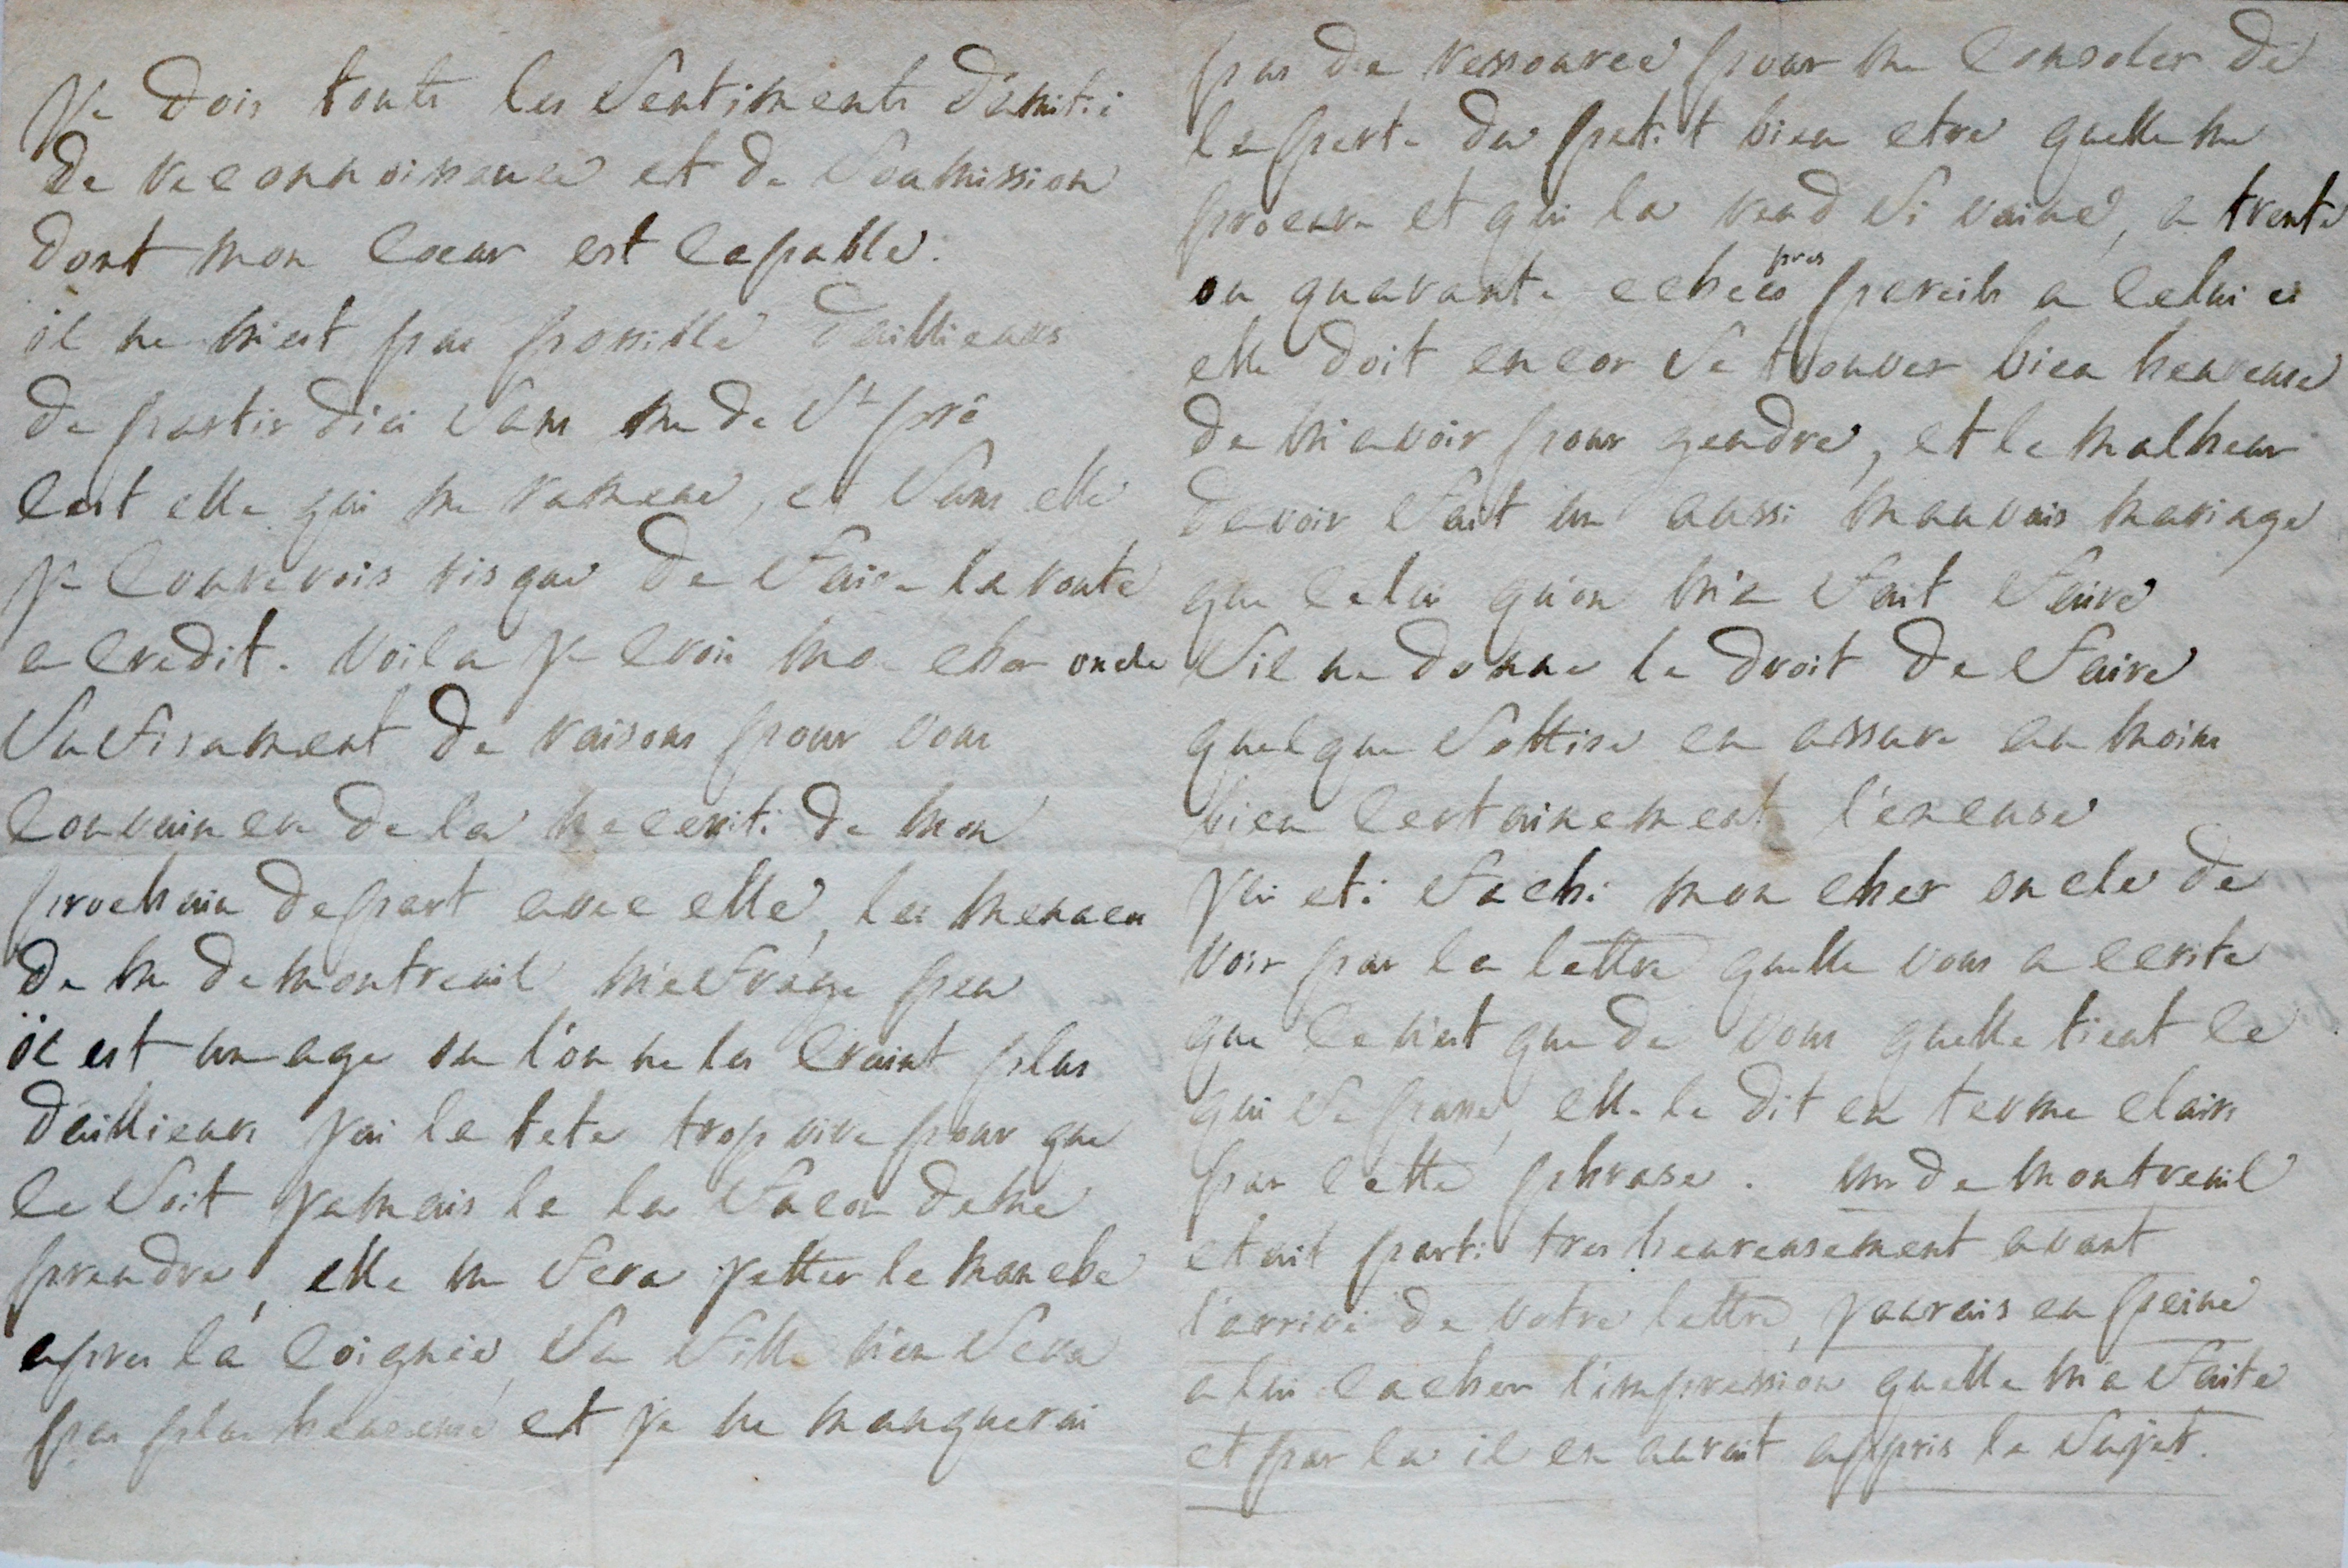 je dois touts les sentiments d'amitié
de reconnoissance et de soumission
dont mon cœur est capable.
il ne m'est pas possible dailleurs
de partir d'ici sans me de St pré
cest elle qui me ramene, et sans elle
je courerois risque de faire la route
a credit. voila je crois mo cher oncle
sufisament de raisons pour vous
convaincre de la necessité de mon
prochain depart avec elle, les menaces
de me de montreuil m'efraye peu
il est un age ou l'on ne les craint plus
dailleurs jai la tete trop vive pour que
ce soit jamais la la facon de me
prendre, elle me fera jetter le manche
apres la coignée, sa fille n'en sera
pas plus heureuse et je ne manquerai
pas de ressource pour me consoler de
la perte du petit bien etre quelle me
procure et qui la rend si vaine, a trente
ou quarante echecs pres pareils a celui ci
elle doit encor se trouver bien heureuse
de m'avoir pour gendre, et le malheur
davoir fait un aussi mauvais mariage
que celui qu'on m'a fait faire
sil ne donne le droit de faire
quelque sottise en assure au moins
bien certainement l'excuse
jai eté faché mon cher oncle de
voir par la lettre quelle vous a ecrite
que ce n'est que de vous quelle tient ce
qui se passe, elle le dit en terme clairs
par cette phrase. mr de montreuil
etait parti tres heureusement avant
l'arrivé de votre lettre, jaurais eu peine
a lui cacher l'impression quelle m'a faite
et par la il en aurait appris le sujet.